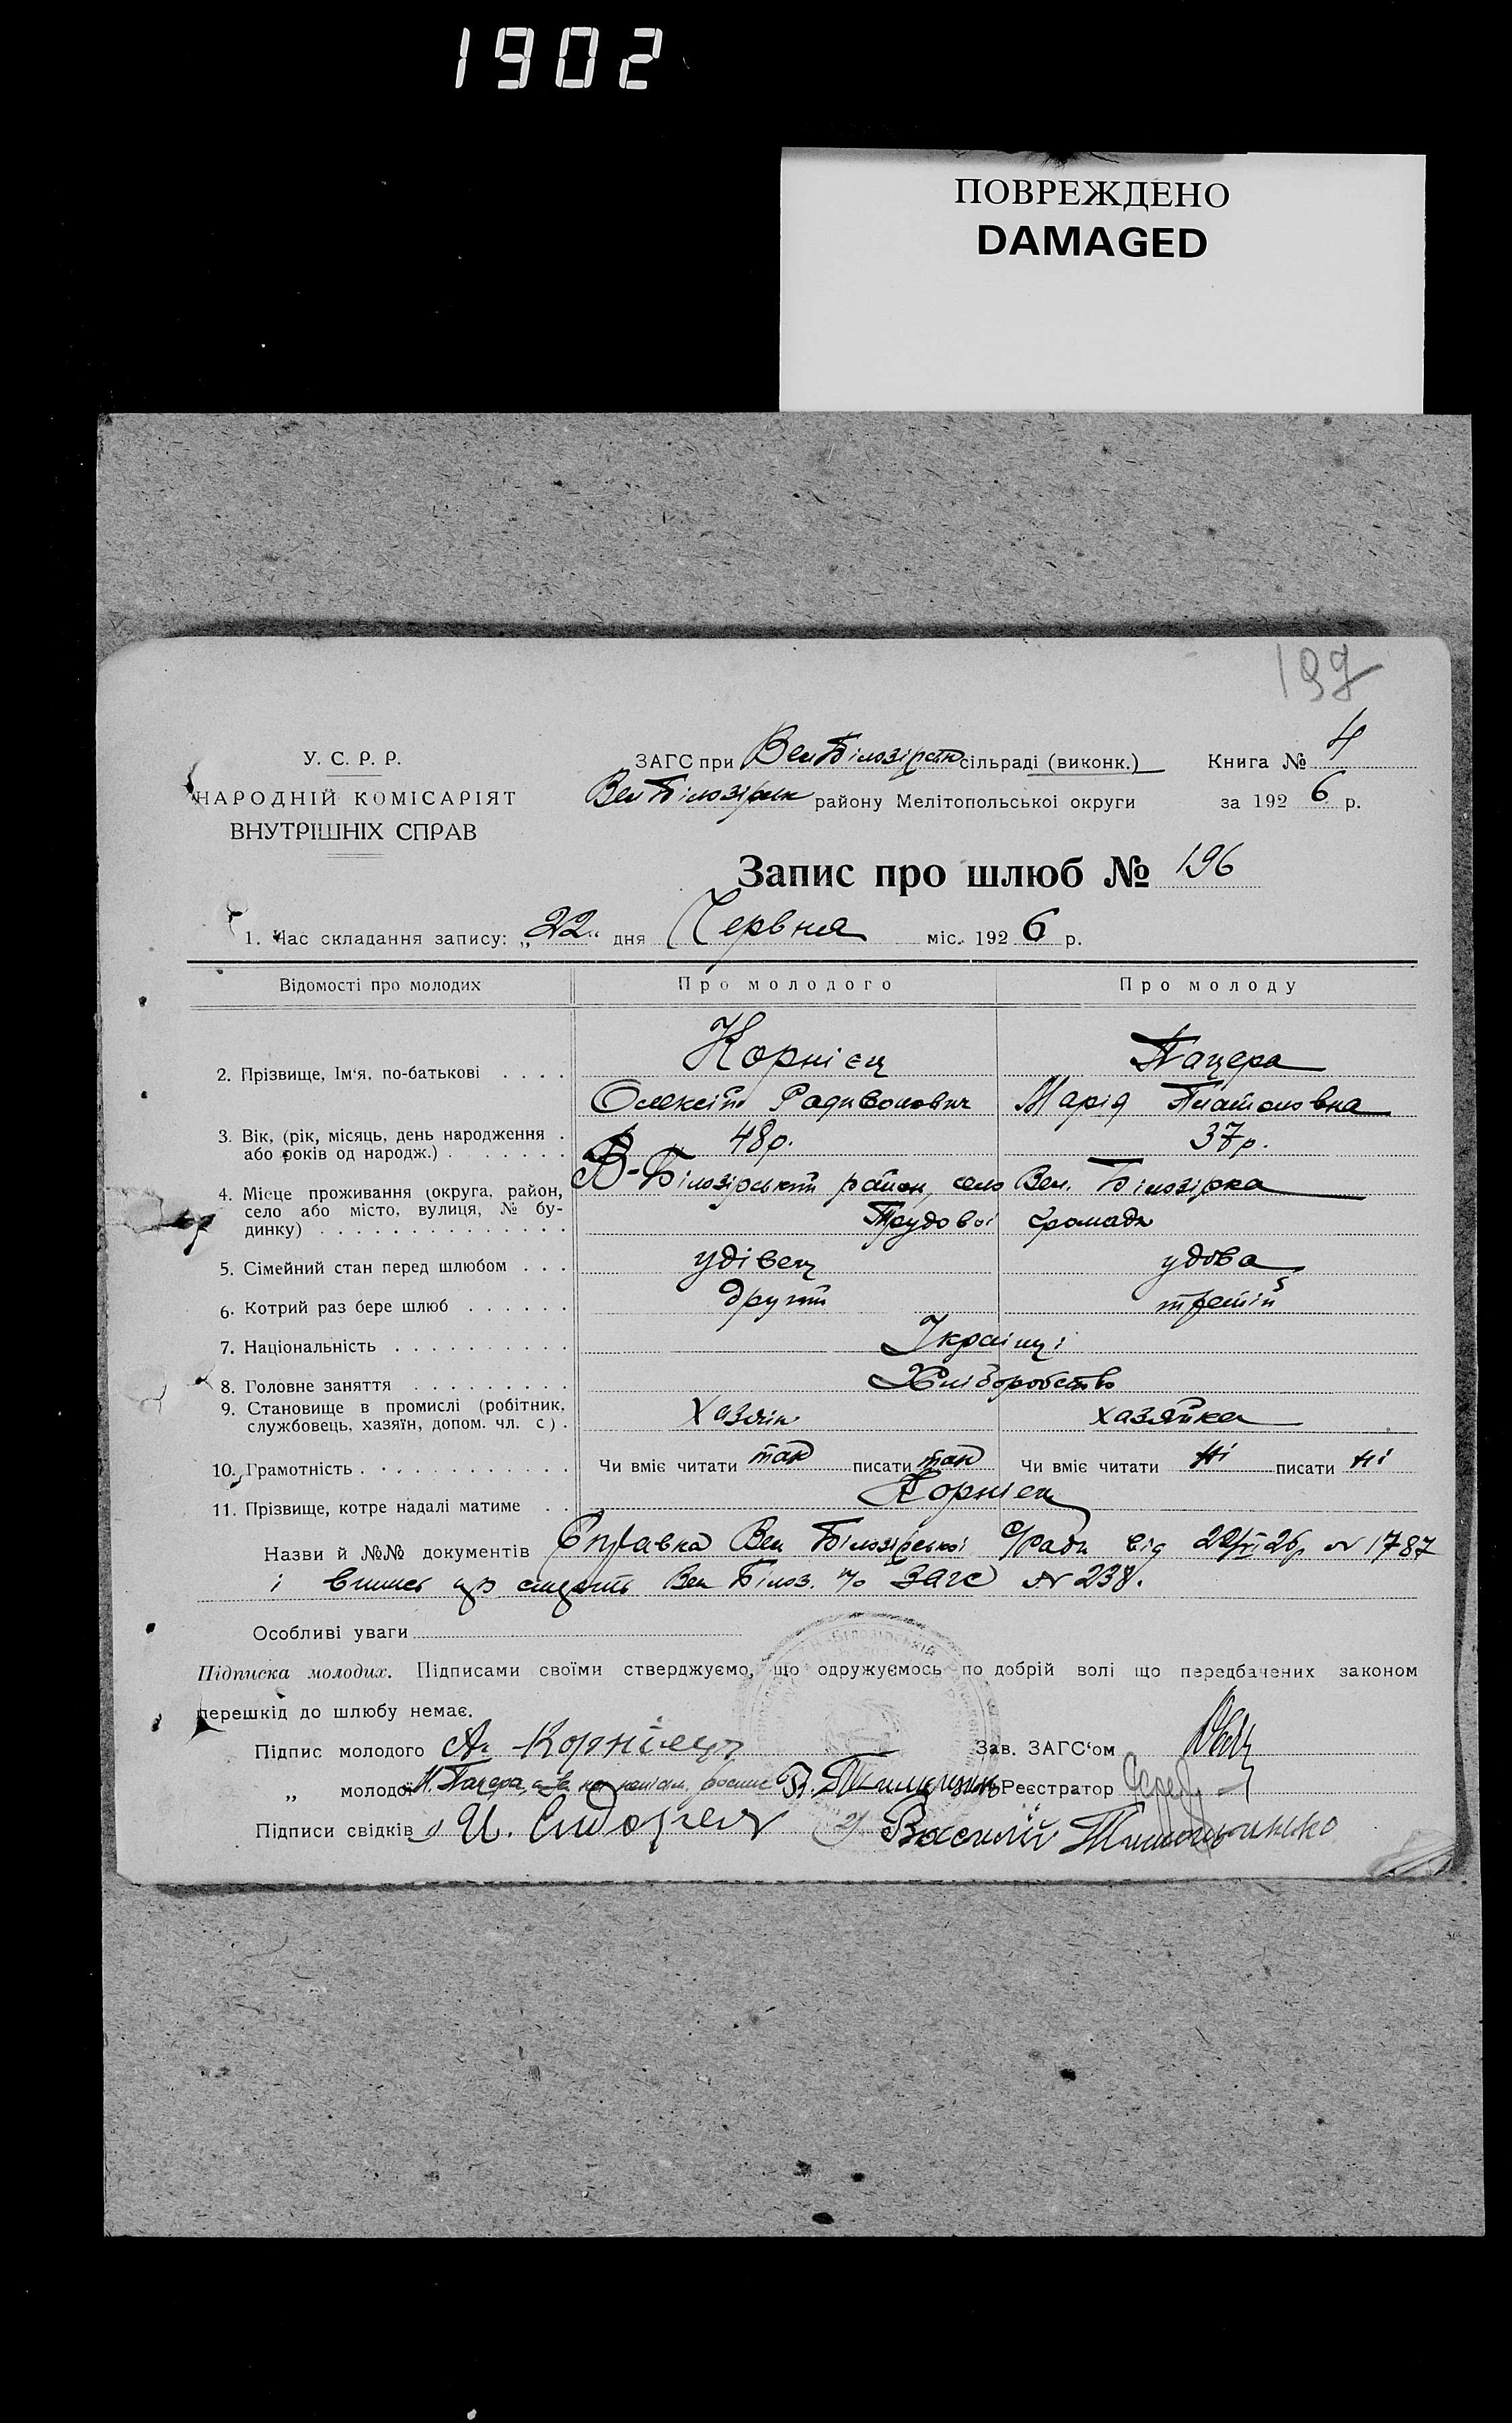 1902
ПОВРЕЖДЕНО
DAMAGED
197
У. С. Р. Р.
НАРОДНІЙ КОМІСАРІЯТ
ВНУТРІШНІХ СПРАВ
ЗАГС при Вел Білозірськ сільраді (виконк.) Книга № 4
Вел Білозірськ району Мелітопольської округи за 1926 р.
Запис про шлюб № 196
1. Час складання запису: „22“ дня Червня міс. 1926 р.
Відомості про молодих Про молодого Про молоду
2. Прізвище, Ім‘я, по-батькові . . . . Корнієц Пацера
Олексій Радивонович Марія Платоновна
3. Вік, (рік, місяць, день народження . 48р. 37р.
або років од народж.) . . . . . . .
4. Місце проживання (округа, район, В-Білозірський район, село Вел. Білозірка
село або місто, вулиця, № бу-
динку) . . . . . . . . . . . . . Трудової громади
5. Сімейний стан перед шлюбом . . . удівец удова
6. Котрий раз бере шлюб . . . . . . другий третій
7. Національність . . . . . . . . . . Українці
8. Головне заняття . . . . . . . . . Хліборобство
9. Становище в промислі (робітник,
службовець, хазяїн, допом. чл. с) . хазяін хазяйка
10. Грамотність . . . . . . . . . . . . Чи вміє читати так писати так Чи вміє читати ні писати ні
11. Прізвище, котре надалі матиме . . Корнієц
Назви й №№ документів Справка Вел Білозірської С/Ради від 22/VI 26р № 1787
і Вел Білоз. ЗАГС № 238.
Особливі уваги
Підписка молодих. Підписами своїми стверджуємо, що одружуємось по добрій волі що передбачених законом
перешкід до шлюбу немає.
Підпис молодого А. Корніец Зав. ЗАГС‘ом
„ молодої М. Пацера Реєстратор
Підписи свідків И. Сидорец 2) Василій